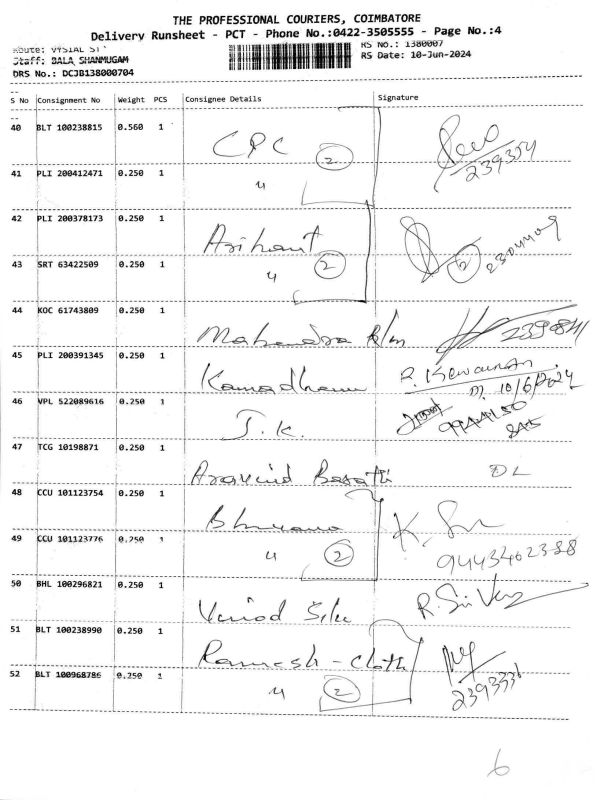 THE PROFESSIONAL COURIERS, COIMBATORE
Delivery Runsheet - PCT - Phone No.:0422-3505555 - Page No.:4
Route: VYSIAL ST
RS No.: 1380007
Staff: BALA SHANMUGAM
RS Date: 10-Jun-2024
DRS No.: DCJB138000704
S No Consignment No Weight PCS Consignee Details Signature
40 BLT 100238815 0.560 1 CPC 2
239354
41 PLI 200412471 0.250 1 "
42 PLI 200378173 0.250 1 Arihant
43 SRT 63422509 0.250 1 " 2 2
44 KOC 61743809 0.250 1 Mahendra
45 PLI 200391345 0.250 1 Kamadhenu
10/6/2024
46 VPL 522089616 0.250 1 J.K.
47 TCG 10198871 0.250 1 Aravind DL
48 CCU 101123754 0.250 1 Bhuvana
49 CCU 101123776 0.250 1 " 2 9443402388
50 BHL 100296821 0.250 1 Vinod
51 BLT 100238990 0.250 1 Ramesh - Cloth
52 BLT 100968786 0.250 1 " 2 2393331
6